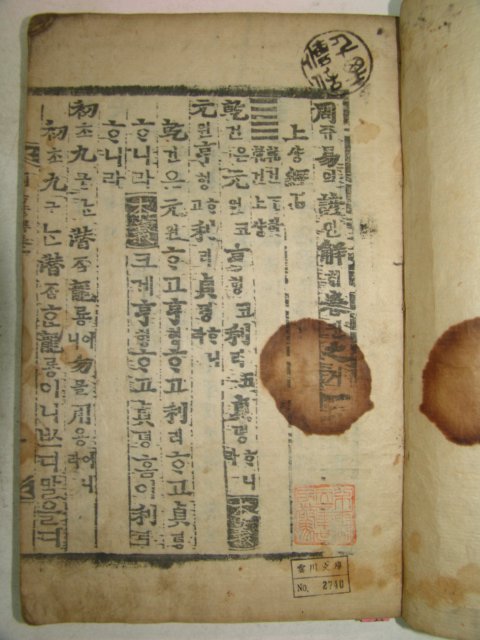 周쥬易역諺언解ᄒᆡ卷권之지
上샹經경
乾건下하
乾건上샹
乾건은元원코亨형코利리코貞뎡ᄒᆞ니라本義
元원亨형코利리貞뎡ᄒᆞ니라
乾건은元원ᄒᆞ고亨형ᄒᆞ고利리ᄒᆞ고貞뎡
ᄒᆞ니라本義크게亨형ᄒᆞ고貞뎡홈이利리
ᄒᆞ니라
初초九구ᄂᆞᆫ潛ᄌᆞᆷ龍룡이니勿믈用용이니라
初초九구ᄂᆞᆫ潛ᄌᆞᆷᄒᆞᆫ龍룡이니ᄡᅳ디말을디
文庫
No. 2740